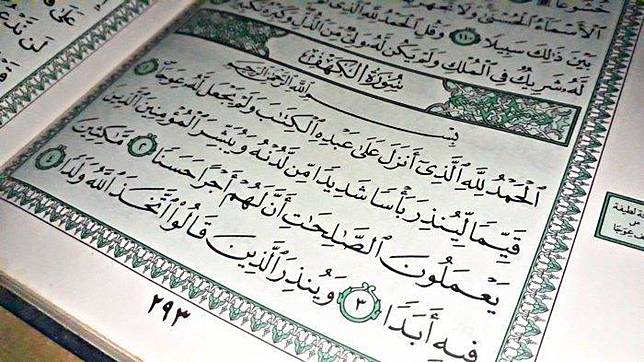 خُشُوعًا
ٱلْأَسْمَآءُ ٱلْحُسْنَىٰ وَلَا تَجْهَرْ
بَيْنَ ذَٰلِكَ سَبِيلًا ١١٠ وَقُلِ ٱلْحَمْدُ لِلَّهِ ٱلَّذِى
لَّهُۥ شَرِيكٌ فِى ٱلْمُلْكِ وَلَمْ يَكُن لَّهُۥ وَلِىٌّ مِّنَ ٱلذُّلِّ وَكَبِّرْهُ تَكْبِيرًا
سُورَةُ الكَهْفِ
بِسْمِ ٱللَّهِ ٱلرَّحْمَٰنِ ٱلرَّحِيمِ
ٱلْحَمْدُ لِلَّهِ ٱلَّذِىٓ أَنزَلَ عَلَىٰ عَبْدِهِ ٱلْكِتَٰبَ وَلَمْ يَجْعَل لَّهُۥ عِوَجَا ١
قَيِّمًا لِّيُنذِرَ بَأْسًا شَدِيدًا مِّن لَّدُنْهُ وَيُبَشِّرَ ٱلْمُؤْمِنِينَ ٱلَّذِينَ
يَعْمَلُونَ ٱلصَّٰلِحَٰتِ أَنَّ لَهُمْ أَجْرًا حَسَنًا ٢ مَّٰكِثِينَ
فِيهِ أَبَدًا ٣ وَيُنذِرَ ٱلَّذِينَ قَالُوا۟ ٱتَّخَذَ ٱللَّهُ وَلَدًا ٤
٢٩٣